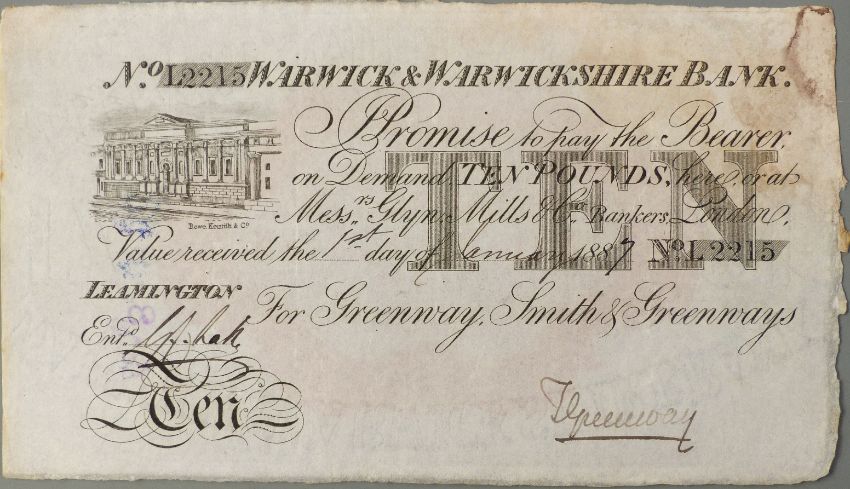 No. L2215 WARWICK & WARWICKSHIRE BANK.
I Promise to pay the Bearer,
on Demand, TEN POUNDS, here, or at
Messrs. Glyn, Mills & Co. Bankers, London,
TEN
Value received the 1st day of January 1887 No. L 2215
LEAMINGTON
For Greenway, Smith & Greenways
Entd.
Ten
Greenway